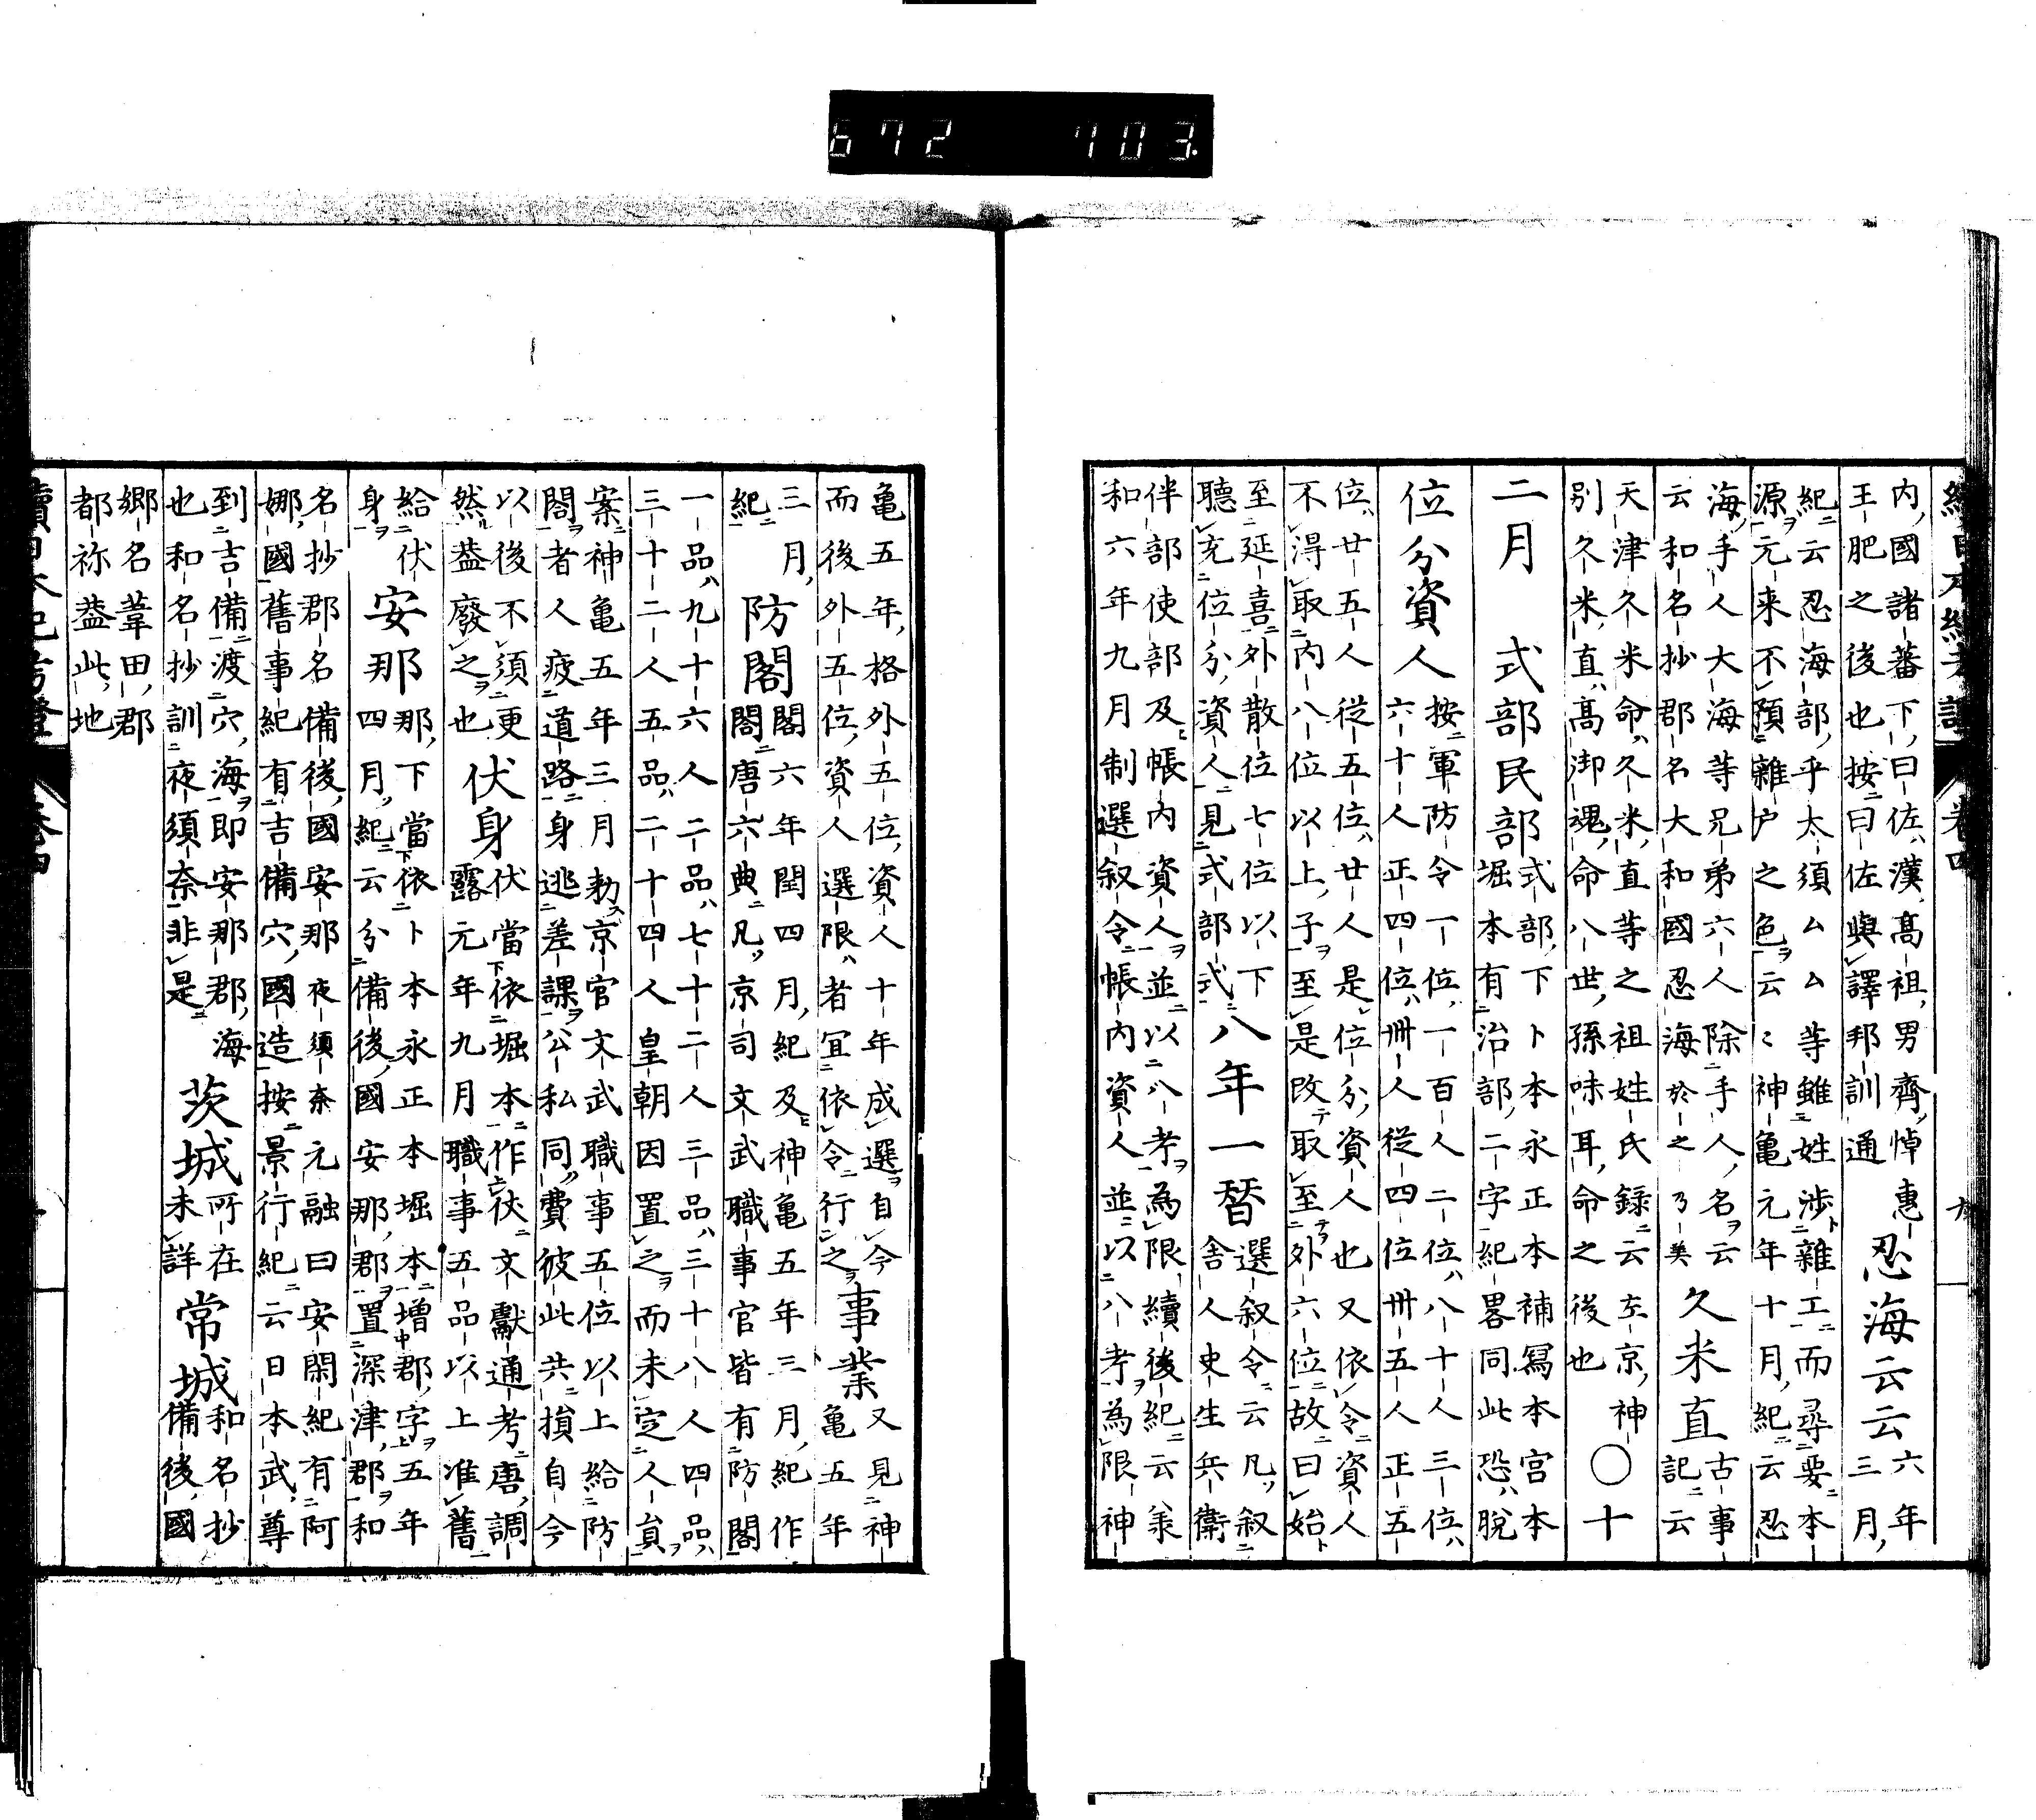 672 703
內國諸蕃下曰佐漢高祖男齊悼惠
王肥之後也按曰佐與譯邦訓通
忍海云云
六年
三月
紀云忍海部乎太須ムム等雖姓渉雜工而尋要本
源元来不預雜戸之色云〻神亀元年十月紀云忍
海手人大海等兄弟六人除手人名云
云和名抄郡名大和國忍海於之乃美
久米直
古事
記云
天津久米命久米直等之祖姓氏録云左京神
別久米直高御魂命八世孫味耳命之後也
○十
二月 式部民部
式部下卜本永正本補寫本宮本
堀本有治部二字紀畧同此恐脱
位分資人
按軍防令一位一百人二位八十人三位
六十人正四位卌人從四位卅五人正五
位廿五人從五位廿人是位分資人也又依令資人
不得取內八位以上子至是改取至外六位故曰始
至延喜外散位七位以下
聴充位分資人見式部式
八年一替
選叙令云凡叙
舎人史生兵衛
伴部使部及帳內資人並以八考為限續後紀云兼
和六年九月制選叙令帳内資人並以八考為限神
亀五年格外五位資人十年成選自今
而後外五位資人選限者宜依令行之
事業
又見神
亀五年
三月
紀
防閤
閤六年閏四月紀及神亀五年三月紀作
閣唐六典凡京司文武職事官皆有防閤
一品九十六人二品七十二人三品三十八人四品
三十二人五品二十四人皇朝因置之而未定人員
案神亀五年三月勅京官文武職事五位以上給防
閤者人疲道路身逃差課公私同費彼此共損自今
以後不須更
然蓋廢之也
伏身
伏當依堀本作仗文獻通考唐調
露元年九月職事五品以上准舊
給伏
身
安那
那下當依卜本永正本堀本増郡字五年
四月紀云分備後國安那郡置深津郡和
名抄郡名備後國安那夜須奈元融曰安閑紀有阿
娜國舊事紀有吉備穴國造按景行紀云日本武尊
到吉備渡穴海即安那郡海
也和名抄訓夜須奈非是
茨城
所在
未詳
常城
和名抄
備後國
鄕名葦田郡
都祢蓋此地